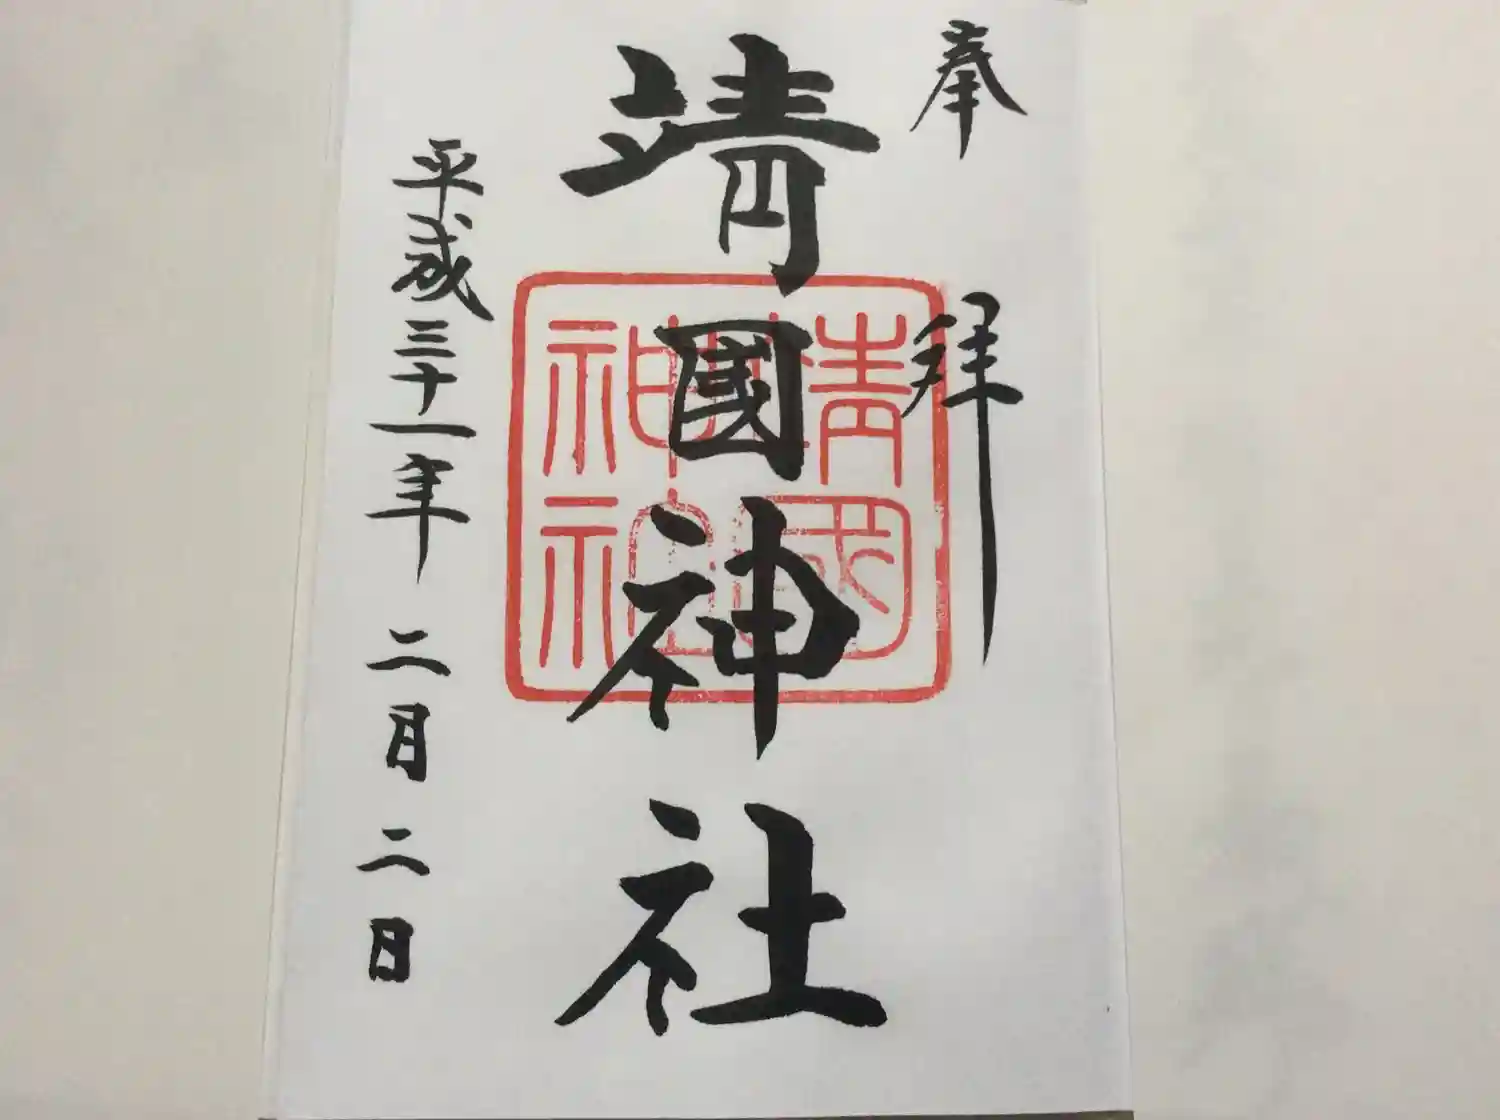 奉拜
靖國神社
靖國神社
平成三十一年二月二日